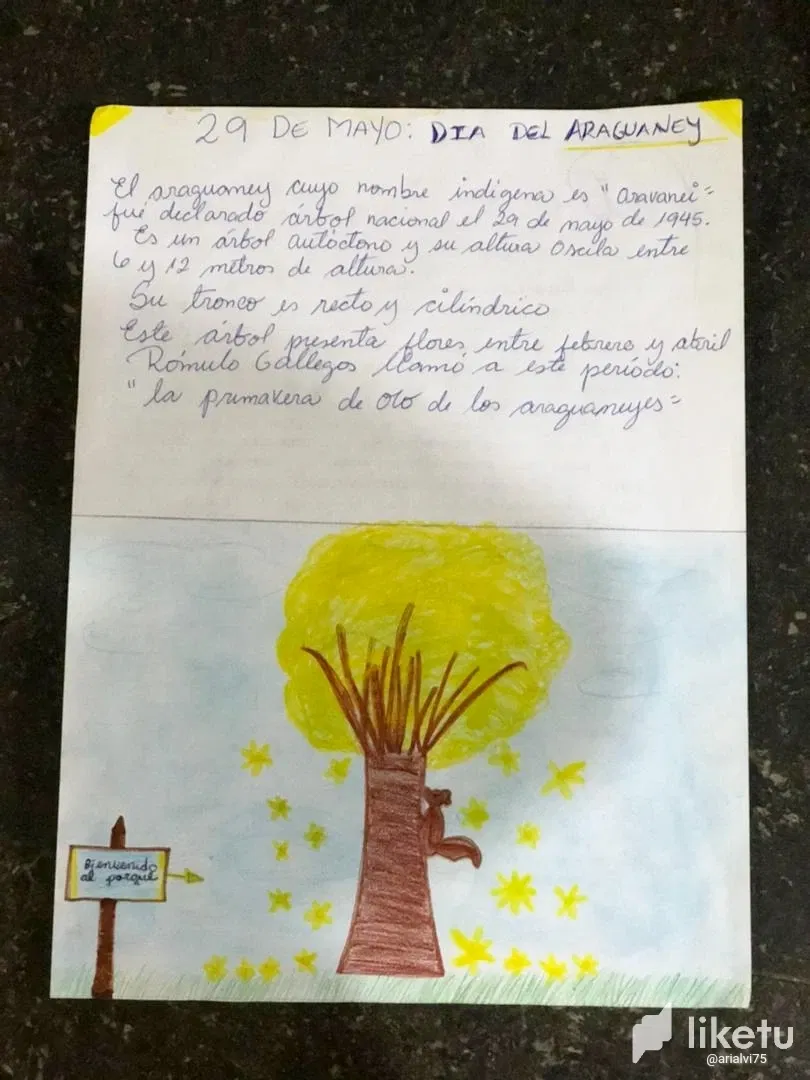 29 DE MAYO: DIA DEL ARAGUANEY
El araguaney cuyo nombre indigena es "aravanei"
fué declarado árbol nacional el 29 de mayo de 1945.
Es un árbol autóctono y su altura oscila entre
6 y 12 metros de altura.
Su tronco es recto y cilíndrico
Este árbol presenta flores entre febrero y abril
Rómulo Gallegos llamó a este período:
"la primavera de oro de los araguaneyes"
Bienvenido
al parque
liketu
@arialvi75